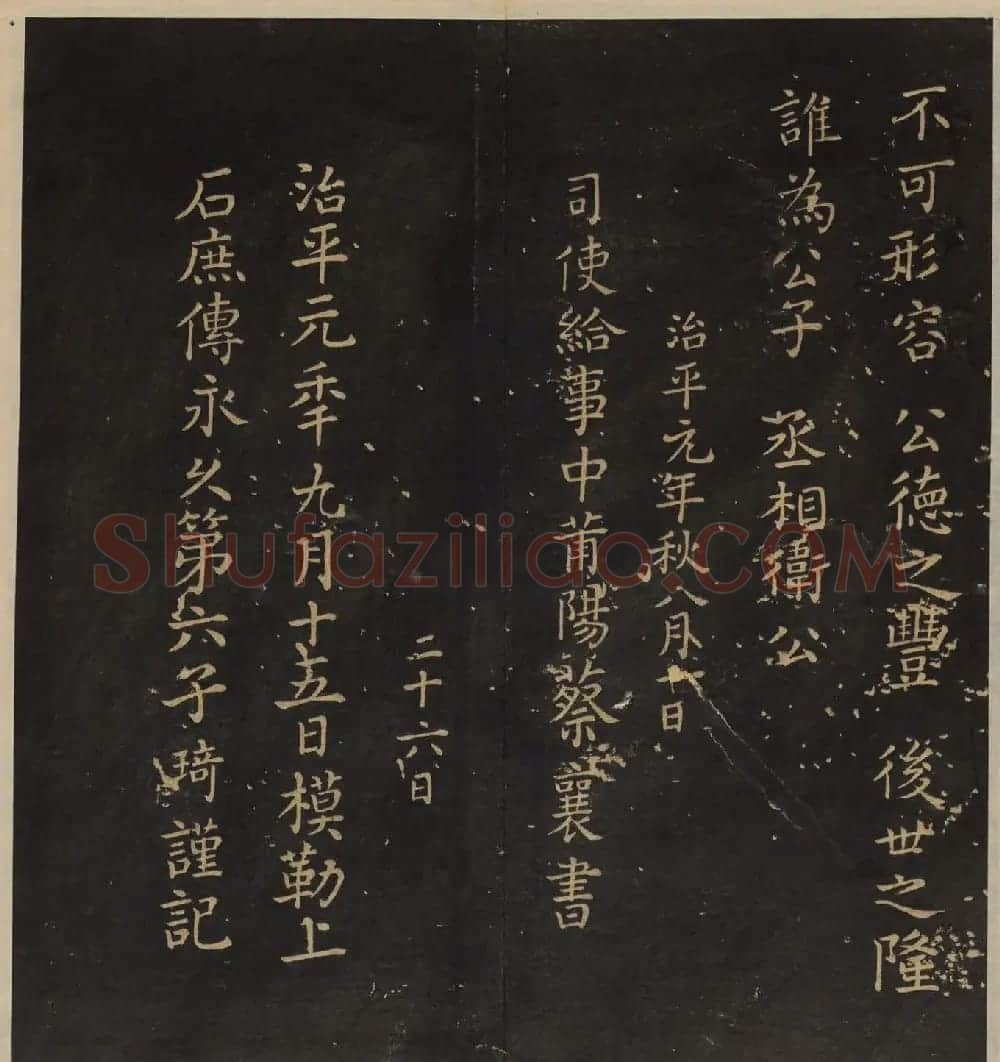 不可形容 公德之豐 後世之隆
誰為公子 丞相衛公
治平元年秋八月十日
司使給事中莆陽蔡襄書
二十六日
治平元秊九月十五日模勒上
石庶傳永久第六子琦謹記
Shufaziliao.COM